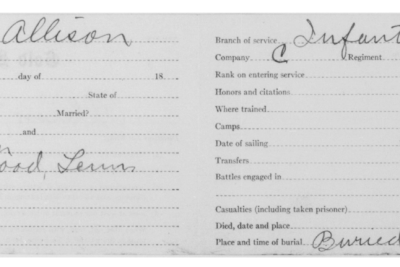 Allison
day of 18
State of
Married?
and
Tenn
Branch of service Infant
Company C Regiment
Rank on entering service
Honors and citations
Where trained
Camps
Date of sailing
Transfers
Battles engaged in
Casualties (including taken prisoner)
Died, date and place
Place and time of burial Buried